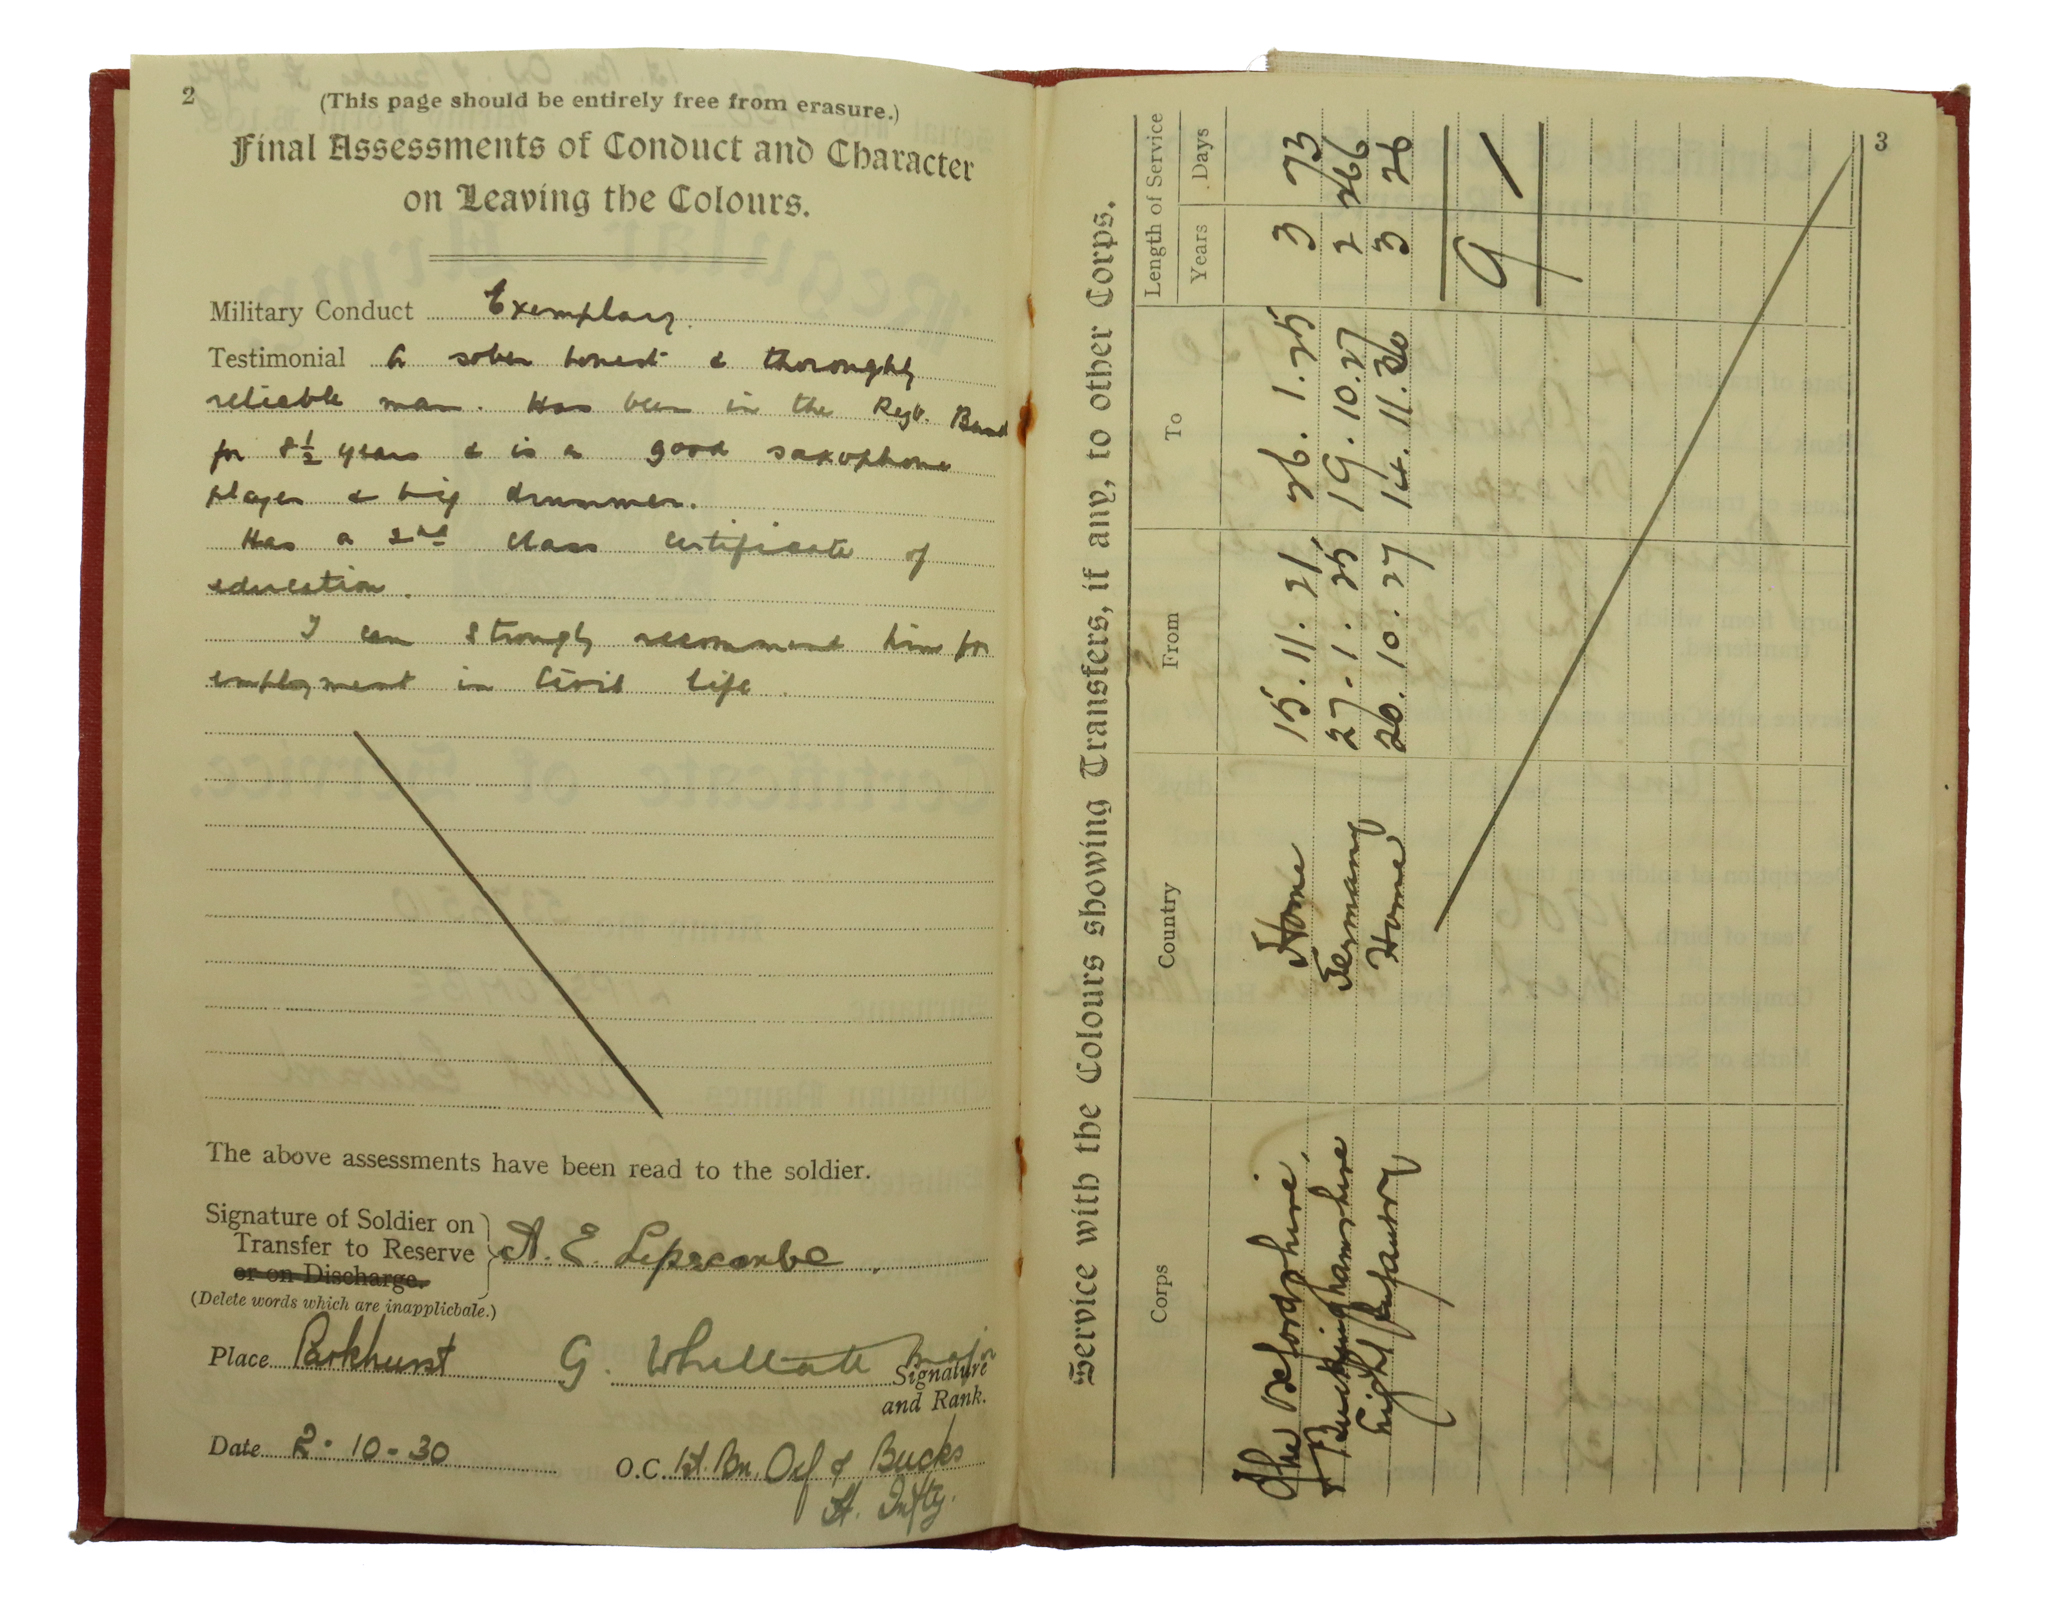 2
(This page should be entirely free from erasure.)
Final Assessments of Conduct and Character
on Leaving the Colours.
Military Conduct Exemplary.
Testimonial A sober honest & thoroughly
reliable man. Has been in the Regt. Band
for 8½ years & is a good saxophone
player & big drummer.
Has a 2nd class certificate of
education.
I can strongly recommend him for
employment in Civil life.
The above assessments have been read to the soldier.
Signature of Soldier on
Transfer to Reserve
or on Discharge.
A. E. Lipscombe.
(Delete words which are inapplicbale.)
Place Parkhurst
G. Major
Signature
and Rank.
Date 2-10-30
O.C. 1st. Bn. Oxf & Bucks
Lt. Infty.
3
Service with the Colours showing Transfers, if any, to other Corps.
Corps Country From To Length of Service
Years Days
The Oxfordshire Home 15.11.21 26.1.25 3 73
& Buckinghamshire Germany 27.1.25 19.10.27 2 266
Light Infantry Home 20.10.27 14.11.30 3 26
9 /